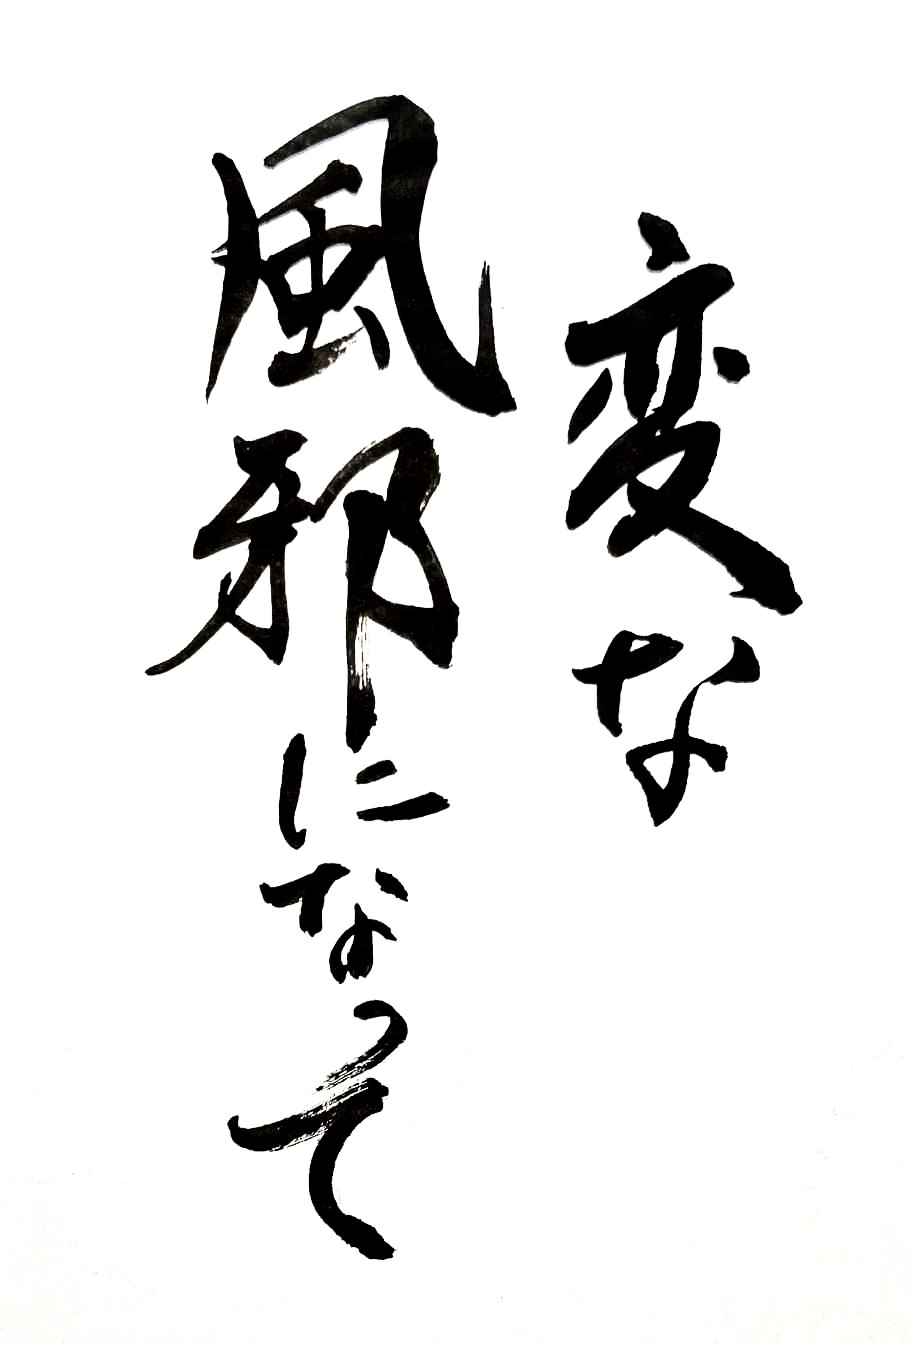 変な
風邪になって